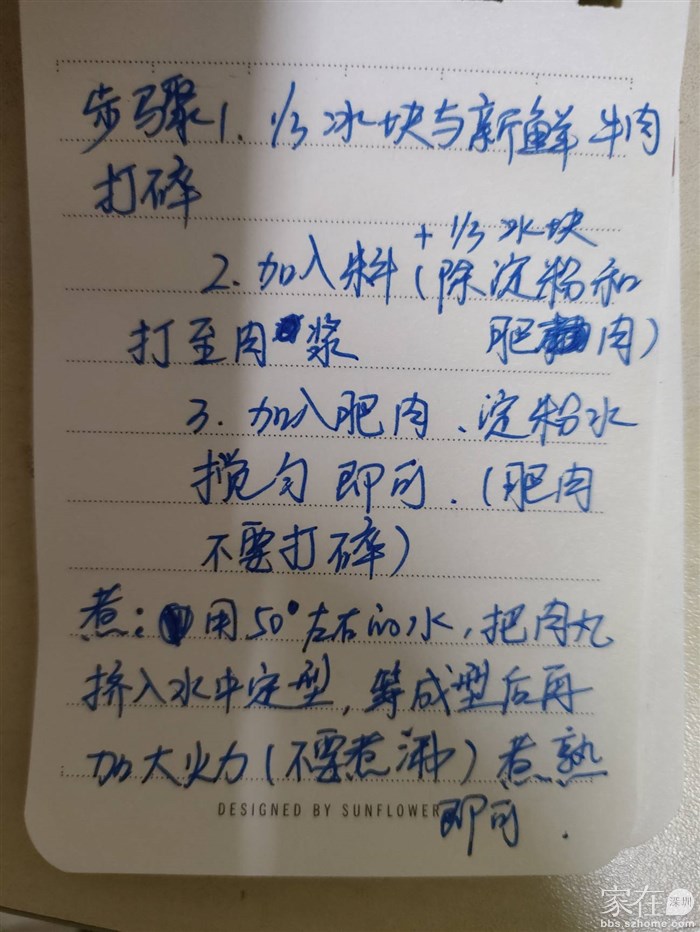 步骤1. 1/3冰块与新鲜牛肉
打碎
+ 1/3冰块
2. 加入料(除淀粉和
打至肉浆 肥肉)
3. 加入肥肉、淀粉水
搅匀即可.(肥肉
不要打碎)
煮:用50°左右的水,把肉丸
挤入水中定型,等成型后再
加大火力(不要煮沸)煮熟
即可.
DESIGNED BY SUNFLOWER
家在深圳
bbs.szhome.com